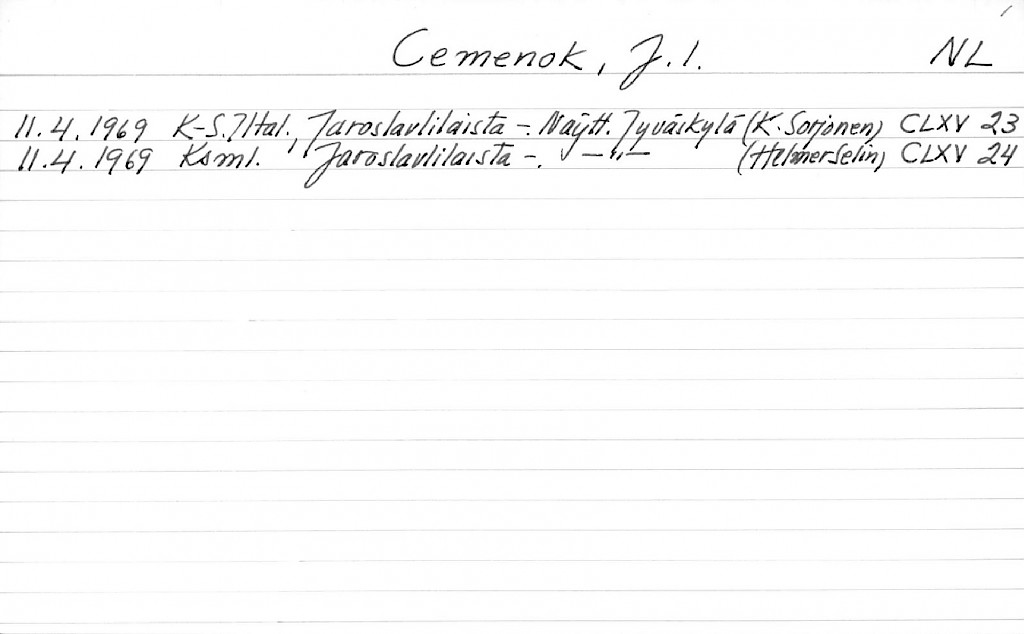 Cemenok, J.I. NL
11.4.1969 K-S.Iltal., Jaroslavlilaista -. Näytt. Jyväskylä (K. Sorjonen) CLXV 23
11.4.1969 Ksml. Jaroslavlilaista -. —"— (Helmer Selin) CLXV 24